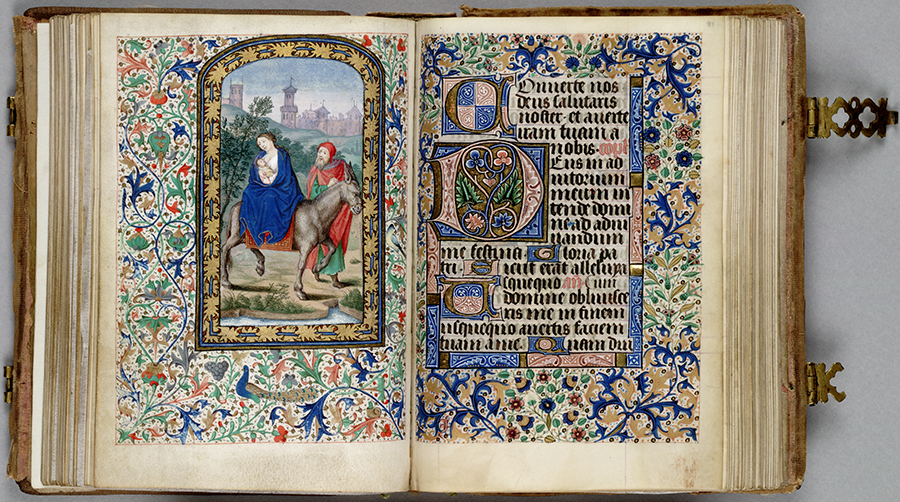 Onuerte nos
deus salutaris
noster · et auerte
iram tuam a
nobis · 
Eus in ad
iutorium
meum in
tende domi
ne ad adiu
uandum
me festina Gloria pa
tri Sicut erat alleluya
Usquequo
domine obliuisce
ris me in finem
usquequo auertis faciem
tuam a me